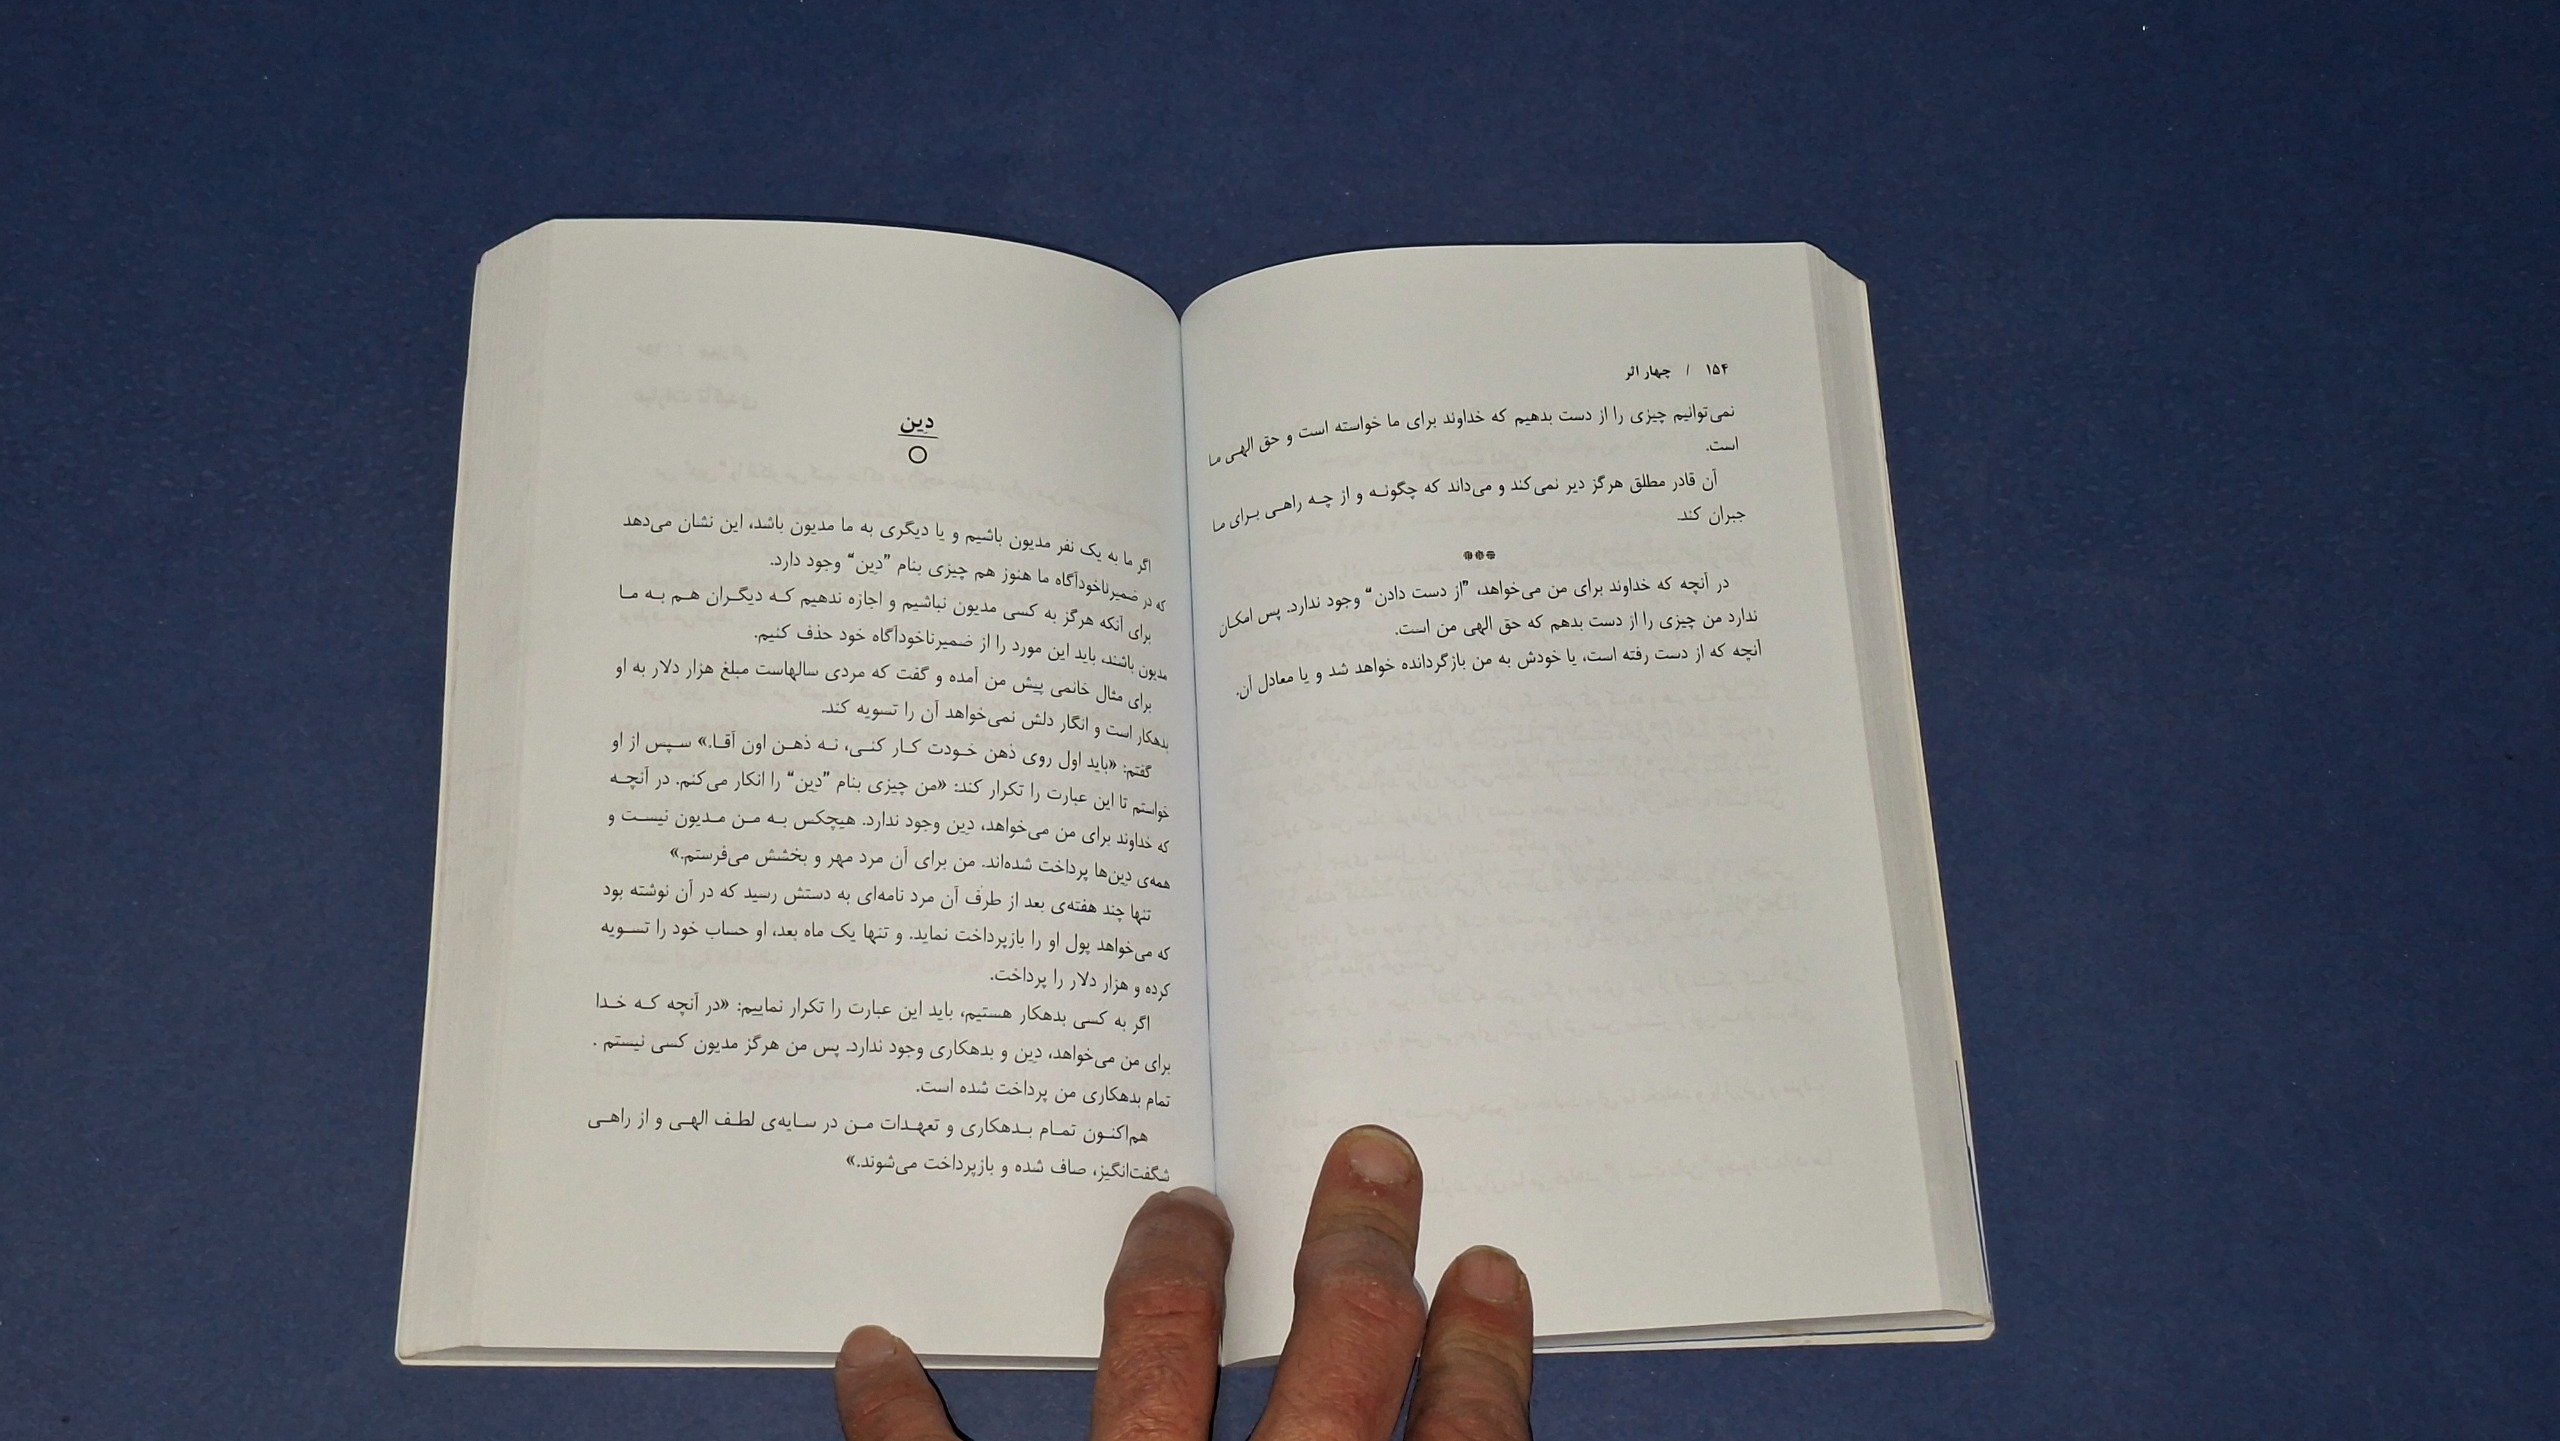 ۱۵۴ / چهار اثر
نمی‌توانیم چیزی را از دست بدهیم که خداوند برای ما خواسته است و حق الهی ما
است.
آن قادر مطلق هرگز دیر نمی‌کند و می‌داند که چگونه و از چه راهی برای ما
جبران کند.
در آنچه که خداوند برای من می‌خواهد، ”از دست دادن“ وجود ندارد. پس امکان
ندارد من چیزی را از دست بدهم که حق الهی من است.
آنچه که از دست رفته است، یا خودش به من بازگردانده خواهد شد و یا معادل آن.
دِین
اگر ما به یک نفر مدیون باشیم و یا دیگری به ما مدیون باشد، این نشان می‌دهد
که در ضمیرناخودآگاه ما هنوز هم چیزی بنام ”دِین“ وجود دارد.
برای آنکه هرگز به کسی مدیون نباشیم و اجازه ندهیم که دیگران هم به ما
مدیون باشند، باید این مورد را از ضمیرناخودآگاه خود حذف کنیم.
برای مثال خانمی پیش من آمده و گفت که مردی سالهاست مبلغ هزار دلار به او
بدهکار است و انگار دلش نمی‌خواهد آن را تسویه کند.
گفتم: «باید اول روی ذهن خودت کار کنی، نه ذهن اون آقا.» سپس از او
خواستم تا این عبارت را تکرار کند: «من چیزی بنام ”دِین“ را انکار می‌کنم. در آنچه
که خداوند برای من می‌خواهد، دِین وجود ندارد. هیچکس به من مدیون نیست و
همه‌ی دِین‌ها پرداخت شده‌اند. من برای آن مرد مهر و بخشش می‌فرستم.»
تنها چند هفته‌ی بعد از طرف آن مرد نامه‌ای به دستش رسید که در آن نوشته بود
که می‌خواهد پول او را بازپرداخت نماید. و تنها یک ماه بعد، او حساب خود را تسویه
کرده و هزار دلار را پرداخت.
اگر به کسی بدهکار هستیم، باید این عبارت را تکرار نماییم: «در آنچه که خدا
برای من می‌خواهد، دِین و بدهکاری وجود ندارد. پس من هرگز مدیون کسی نیستم .
تمام بدهکاری من پرداخت شده است.
هم‌اکنون تمام بدهکاری و تعهدات من در سایه‌ی لطف الهی و از راهی
شگفت‌انگیز، صاف شده و بازپرداخت می‌شوند.»